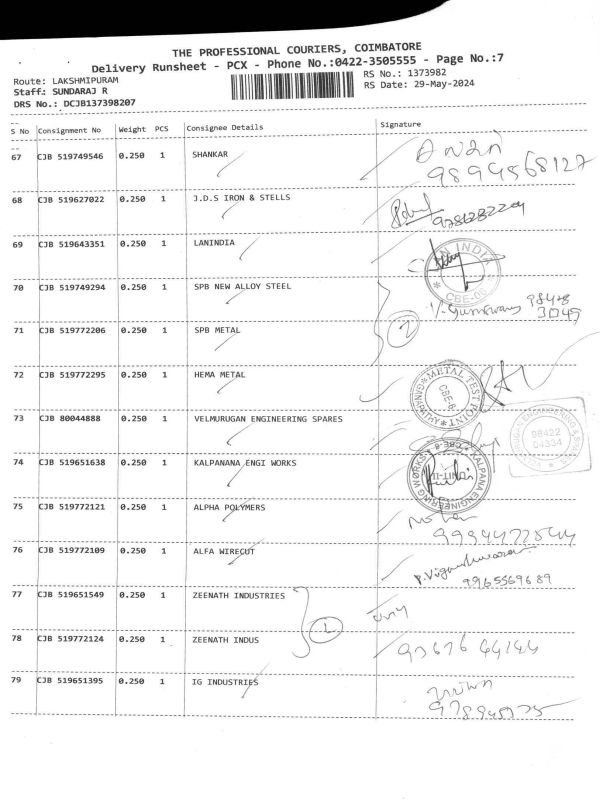 THE PROFESSIONAL COURIERS, COIMBATORE
Delivery Runsheet - PCX - Phone No.:0422-3505555 - Page No.:7
Route: LAKSHMIPURAM
RS No.: 1373982
Staff: SUNDARAJ R
RS Date: 29-May-2024
DRS No.: DCJB137398207
S No Consignment No Weight PCS Consignee Details Signature
67 CJB 519749546 0.250 1 SHANKAR
9894568127
68 CJB 519627022 0.250 1 J.D.S IRON & STELLS
69 CJB 519643351 0.250 1 LANINDIA
INDIA
CBE-06
70 CJB 519749294 0.250 1 SPB NEW ALLOY STEEL
98428
71 CJB 519772206 0.250 1 SPB METAL
2
72 CJB 519772295 0.250 1 HEMA METAL
METAL TEST POINT
CBE-6
73 CJB 80044888 0.250 1 VELMURUGAN ENGINEERING SPARES
98422
04334
74 CJB 519651638 0.250 1 KALPANANA ENGI WORKS
KALPANA ENGINEERING WORKS
CBE-6
UNIT-II
75 CJB 519772121 0.250 1 ALPHA POLYMERS
76 CJB 519772109 0.250 1 ALFA WIRECUT
9965569689
77 CJB 519651549 0.250 1 ZEENATH INDUSTRIES
78 CJB 519772124 0.250 1 ZEENATH INDUS
79 CJB 519651395 0.250 1 IG INDUSTRIES